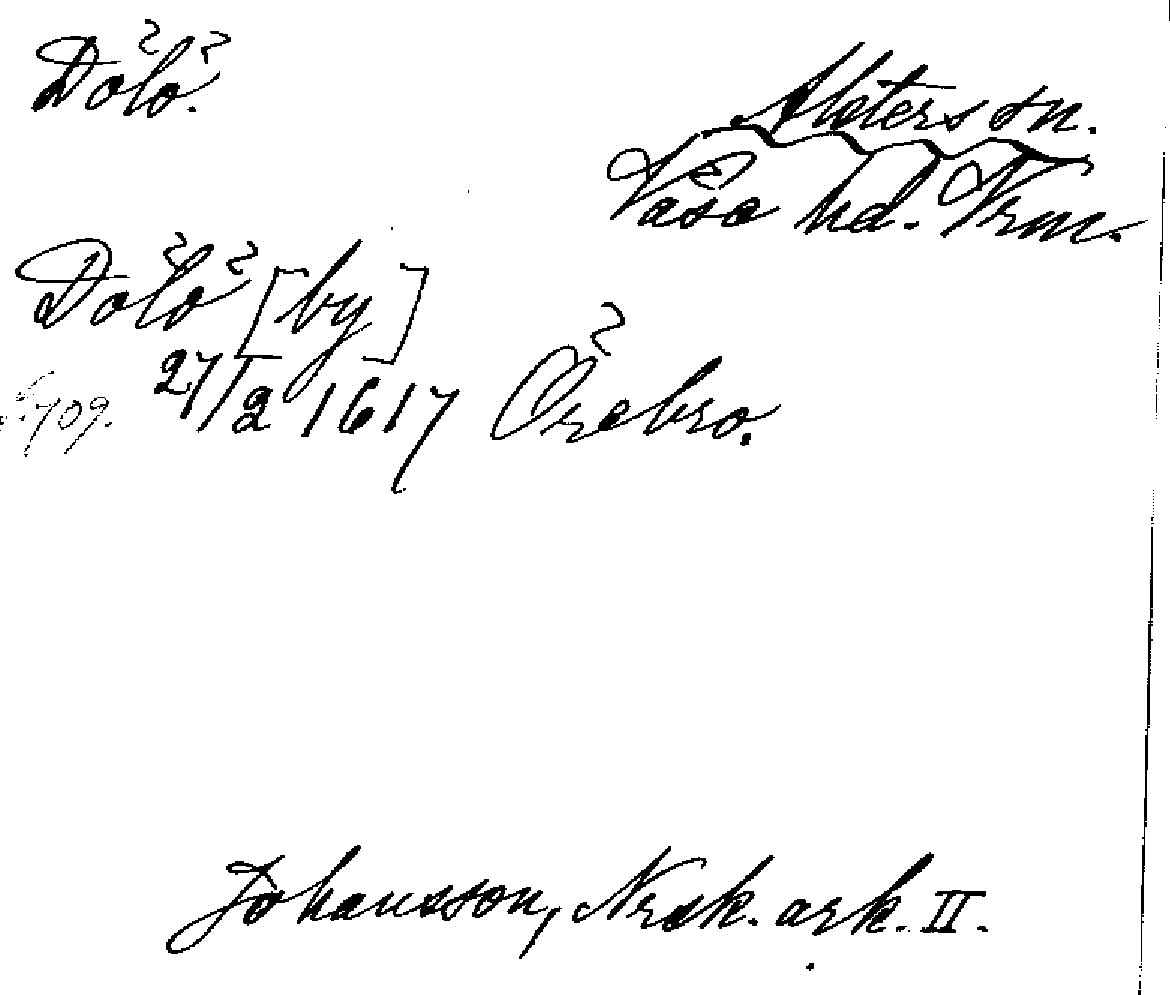 Dölö.
Alsters sn.
Väse hd. Vrm.
Dölö [by]
s. 709. 27/2 1617 Örebro.
Johansson, Nrsk. ark. II.